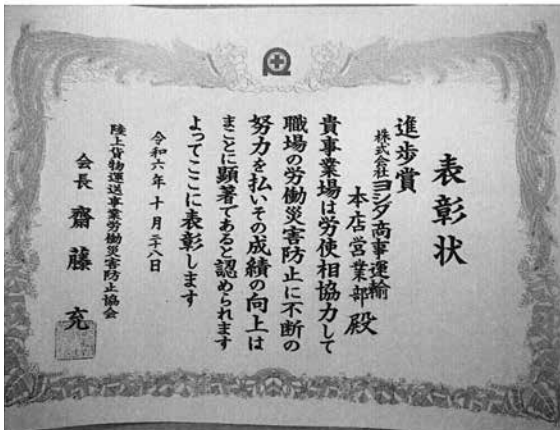 表彰状
進歩賞
株式会社ヨシダ商事運輸
本店営業部殿
貴事業場は労使相協力して
職場の労働災害防止に不断の
努力を払いその成績の向上は
まことに顕著であると認められます
よってここに表彰します
令和六年十月二十八日
陸上貨物運送事業労働災害防止協会
会長 齋藤充